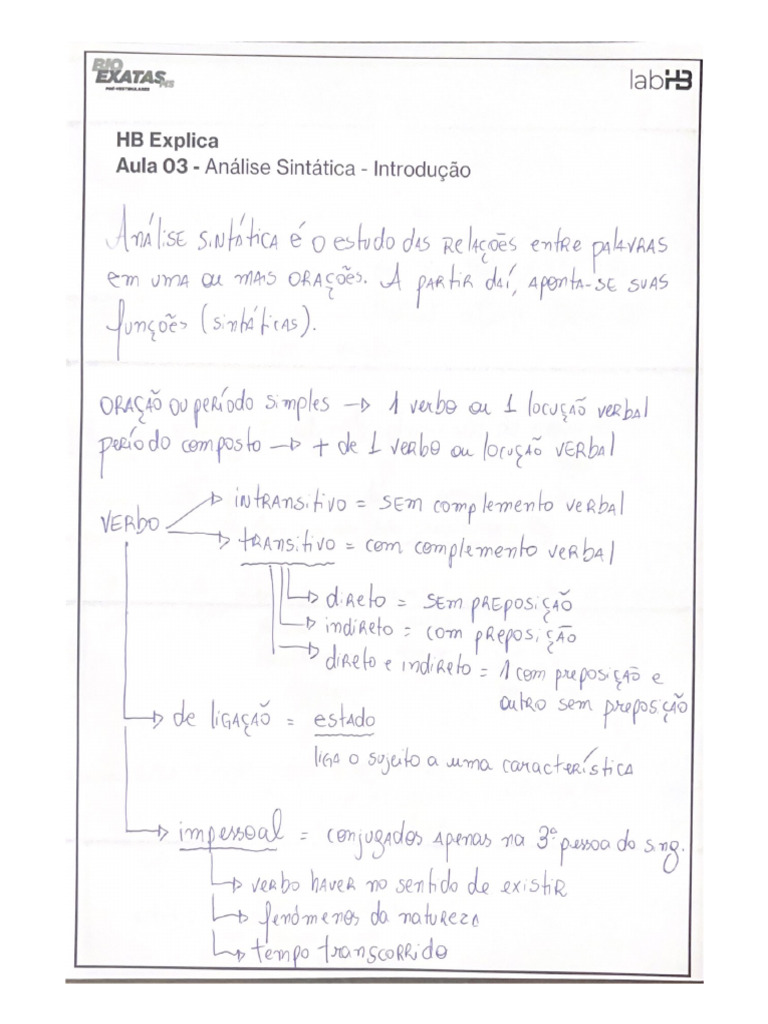 BIO
EXATAS MS
PRÉ-VESTIBULARES
labHB
HB Explica
Aula 03 - Análise Sintática - Introdução
Análise sintática é o estudo das relações entre palavras
em uma ou mais orações. A partir daí, aponta-se suas
funções (sintáticas).
Oração ou período simples → 1 verbo ou 1 locução verbal
período composto → + de 1 verbo ou locução verbal
Verbo
→ intransitivo = sem complemento verbal
→ transitivo = com complemento verbal
→ direto = sem preposição
→ indireto = com preposição
→ direto e indireto = 1 com preposição e
outro sem preposição
→ de ligação = estado
liga o sujeito a uma característica
→ impessoal = conjugados apenas na 3ª pessoa do sing.
→ verbo haver no sentido de existir
→ fenômenos da natureza
→ tempo transcorrido